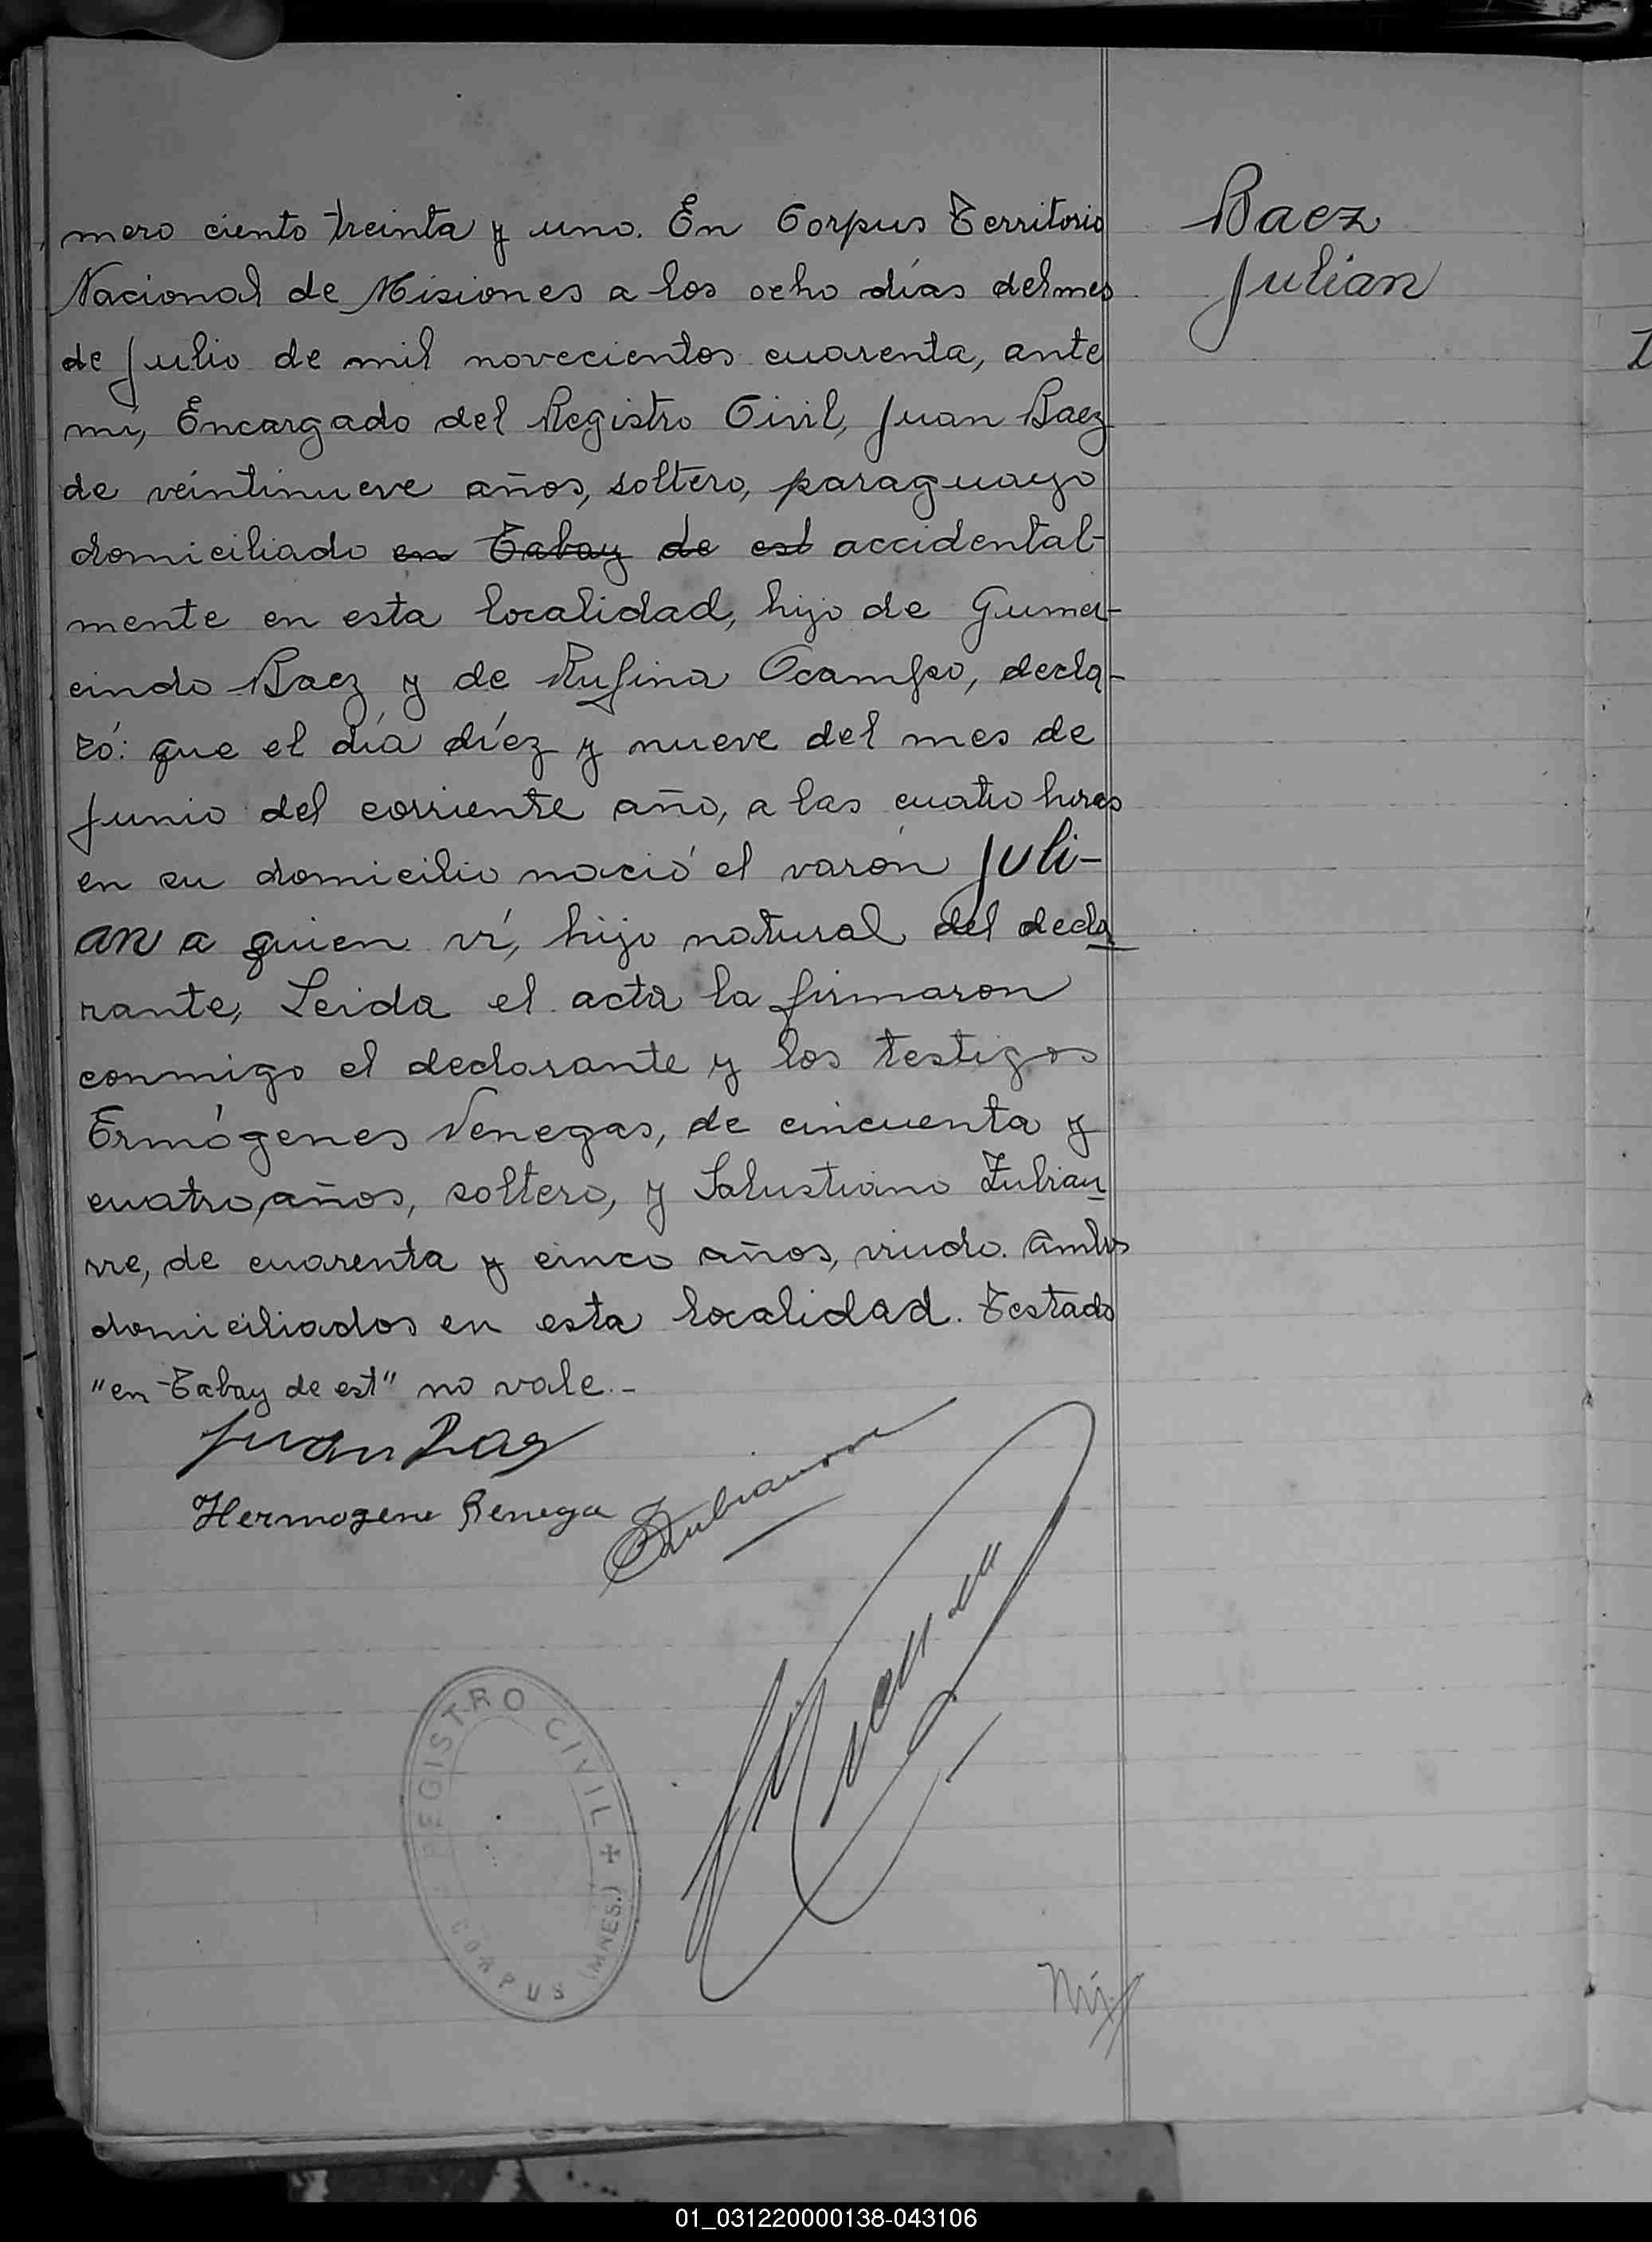 mero ciento treinta y uno. En Corpus Territorio
Nacional de Misiones a los ocho días del mes
de Julio de mil novecientos cuarenta, ante
mí, Encargado del Registro Civil, Juan Baez
de veintinueve años, soltero, paraguayo
domiciliado en Tabay de est accidental-
mente en esta localidad, hijo de Gumer-
cindo Baez y de Rufina Ocampo, decla-
ró: que el día díez y nueve del mes de
Junio del corriente año, a las cuatro horas
en su domicilio nació el varón Juli-
an a quien ví, hijo natural del decla
rante, Leida el acta la firmaron
conmigo el declarante y los testigos
Ermógenes Venegas, de cincuenta y
cuatro años, soltero, y Salustiano Zubiau
rre, de cuarenta y cinco años, viudo. Ambos
domiciliados en esta localidad. Testado
"en Tabay de est" no vale.-
Juan Baez
Hermogene Benega
SZubiaurre
REGISTRO CIVIL
CORPUS (MNES.)
Baez
Julian
01_031220000138-043106